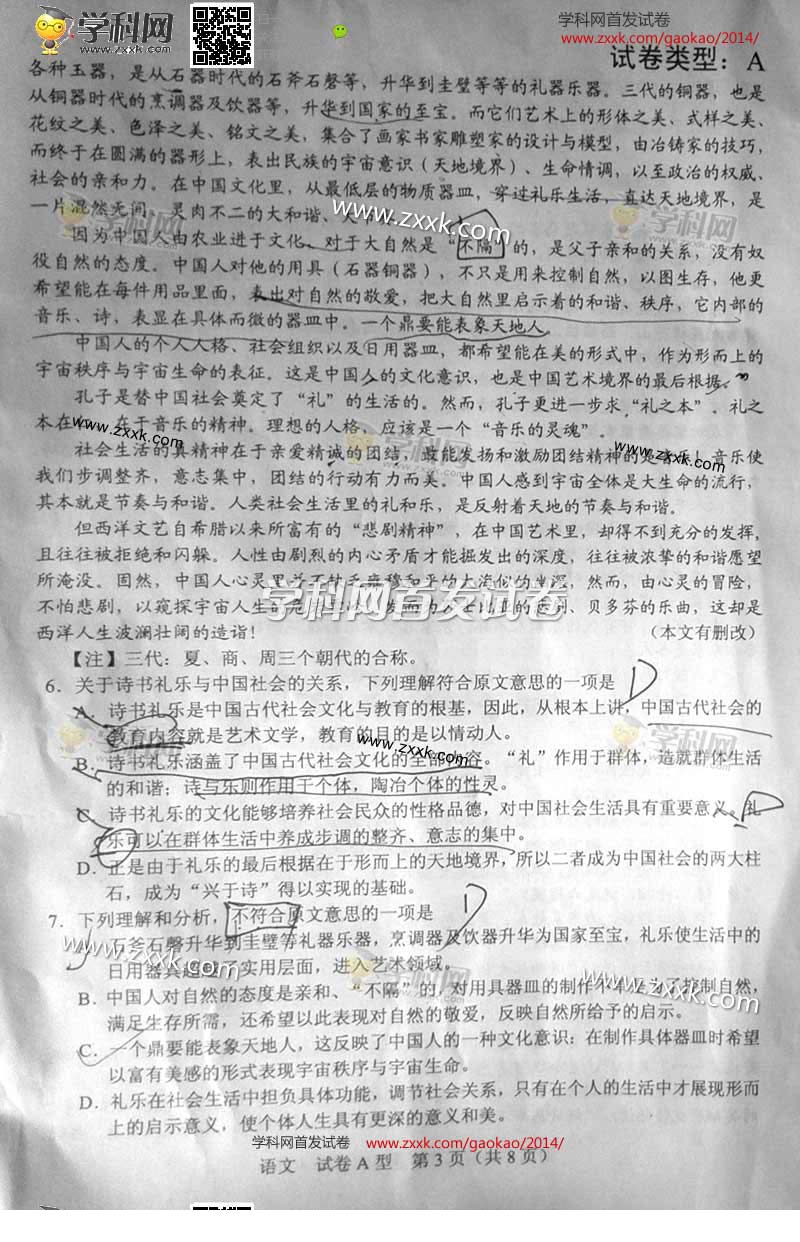 学科网
www.zxxk.com
学科网首发试卷
www.zxxk.com/gaokao/2014/
试卷类型：A
各种玉器，是从石器时代的石斧石磬等，升华到圭璧等等的礼器乐器。三代的铜器，也是
从铜器时代的烹调器及饮器等，升华到国家的至宝。而它们艺术上的形体之美、式样之美、
花纹之美、色泽之美、铭文之美，集合了画家书家雕塑家的设计与模型，由冶铸家的技巧，
而终于在圆满的器形上，表出民族的宇宙意识（天地境界）、生命情调，以至政治的权威、
社会的亲和力。在中国文化里，从最低层的物质器皿，穿过礼乐生活，直达天地境界，是
一片混然无间，灵肉不二的大和谐、大
因为中国人由农业进于文化，对于大自然是“不隔”的，是父子亲和的关系，没有奴
役自然的态度。中国人对他的用具（石器铜器），不只是用来控制自然，以图生存，他更
希望能在每件用品里面，表出对自然的敬爱，把大自然里启示着的和谐、秩序，它内部的
音乐、诗，表显在具体而微的器皿中。一个鼎要能表象天地人。
中国人的个人人格、社会组织以及日用器皿，都希望能在美的形式中，作为形而上的
宇宙秩序与宇宙生命的表征。这是中国人的文化意识，也是中国艺术境界的最后根据。
孔子是替中国社会奠定了“礼”的生活的。然而，孔子更进一步求“礼之本”。礼之
本在 在于音乐的精神。理想的人格、应该是一个“音乐的灵魂”。
社会生活的真精神在于亲爱精诚的团结，最能发扬和激励团结精神的是音乐！音乐使
我们步调整齐，意志集中，团结的行动有力而美。中国人感到宇宙全体是大生命的流行，
其本就是节奏与和谐。人类社会生活里的礼和乐，是反射着天地的节奏与和谐。
但西洋文艺自希腊以来所富有的“悲剧精神”，在中国艺术里，却得不到充分的发挥，
且往往被拒绝和闪躲。人性由剧烈的内心矛盾才能掘发出的深度，往往被浓挚的和谐愿望
所淹没。固然，中国人心灵里并不缺乏雍穆和平的大海似的幽深，然而，由心灵的冒险，
不怕悲剧，以窥探宇宙人生的 悲剧、贝多芬的乐曲，这却是
西洋人生波澜壮阔的造诣！ （本文有删改）
学科网首发试卷
【注】三代：夏、商、周三个朝代的合称。
6．关于诗书礼乐与中国社会的关系，下列理解符合原文意思的一项是 D
A．诗书礼乐是中国古代社会文化与教育的根基，因此，从根本上讲，中国古代社会的
教育内容就是艺术文学，教育的目的是以情动人。
B．诗书礼乐涵盖了中国古代社会文化的全部内容。“礼”作用于群体，造就群体生活
的和谐；诗与乐则作用于个体，陶冶个体的性灵。
C．诗书礼乐的文化能够培养社会民众的性格品德，对中国社会生活具有重要意义。礼
乐可以在群体生活中养成步调的整齐、意志的集中。
D．正是由于礼乐的最后根据在于形而上的天地境界，所以二者成为中国社会的两大柱
石，成为“兴于诗”得以实现的基础。
7．下列理解和分析，不符合原文意思的一项是 D
石斧石磬升华到圭璧等礼器乐器，烹调器及饮器升华为国家至宝，礼乐使生活中的
日用器具超越了实用层面，进入艺术领域。
B．中国人对自然的态度是亲和、“不隔”的，对用具器皿的制作不只是为了控制自然，
满足生存所需，还希望以此表现对自然的敬爱，反映自然所给予的启示。
C．一个鼎要能表象天地人，这反映了中国人的一种文化意识：在制作具体器皿时希望
以富有美感的形式表现宇宙秩序与宇宙生命。
D．礼乐在社会生活中担负具体功能，调节社会关系，只有在个人的生活中才展现形而
上的启示意义，使个体人生具有更深的意义和美。
学科网首发试卷 www.zxxk.com/gaokao/2014/
语文 试卷A型 第3页（共8页）